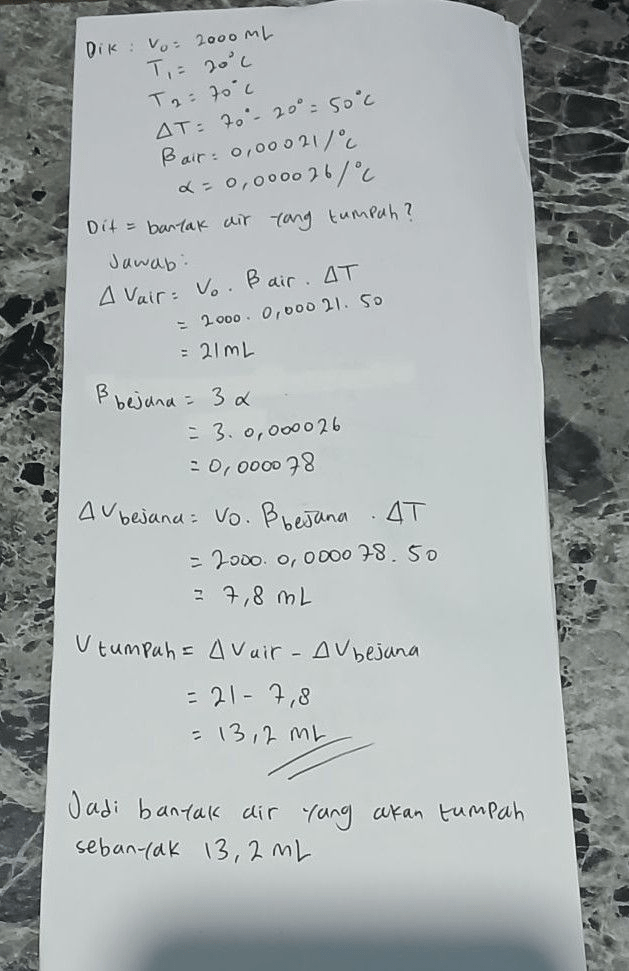 Dik : V₀ = 2000 mL
T₁ = 20°C
T₂ = 70°C
ΔT = 70° - 20° = 50°C
β air = 0,00021/°C
α = 0,000026/°C
Dit = banyak air yang tumpah?
Jawab :
Δ Vair = V₀ . β air . ΔT
= 2000 . 0,00021 . 50
= 21 mL
β bejana = 3 α
= 3 . 0,000026
= 0,000078
ΔVbejana = V0 . βbejana . ΔT
= 2000 . 0,000078 . 50
= 7,8 mL
V tumpah = ΔVair - ΔVbejana
= 21 - 7,8
= 13,2 mL
Jadi banyak air yang akan tumpah
sebanyak 13,2 mL